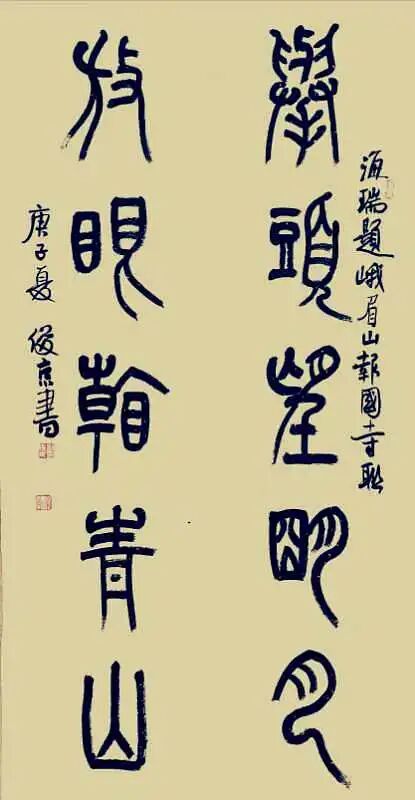 海瑞題峨眉山報國寺聯
舉頭望明月
放眼看青山
庚子夏 俊京書